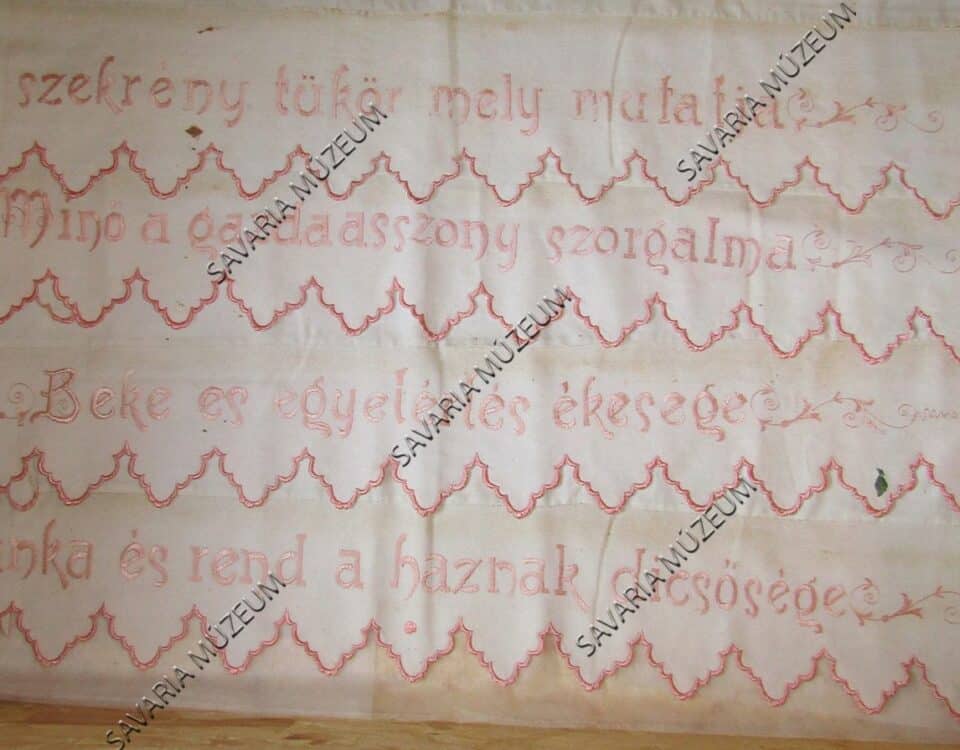 szekrény tükör mely mutatja
Minő a gazdaasszony szorgalma
Beke es egyetértés ékesége
unka és rend a haznak dicsősége
SAVARIA MÚZEUM
SAVARIA MÚZEUM
SAVARIA MÚZEUM
SAVARIA MÚZEUM
SAVARIA MÚZEUM